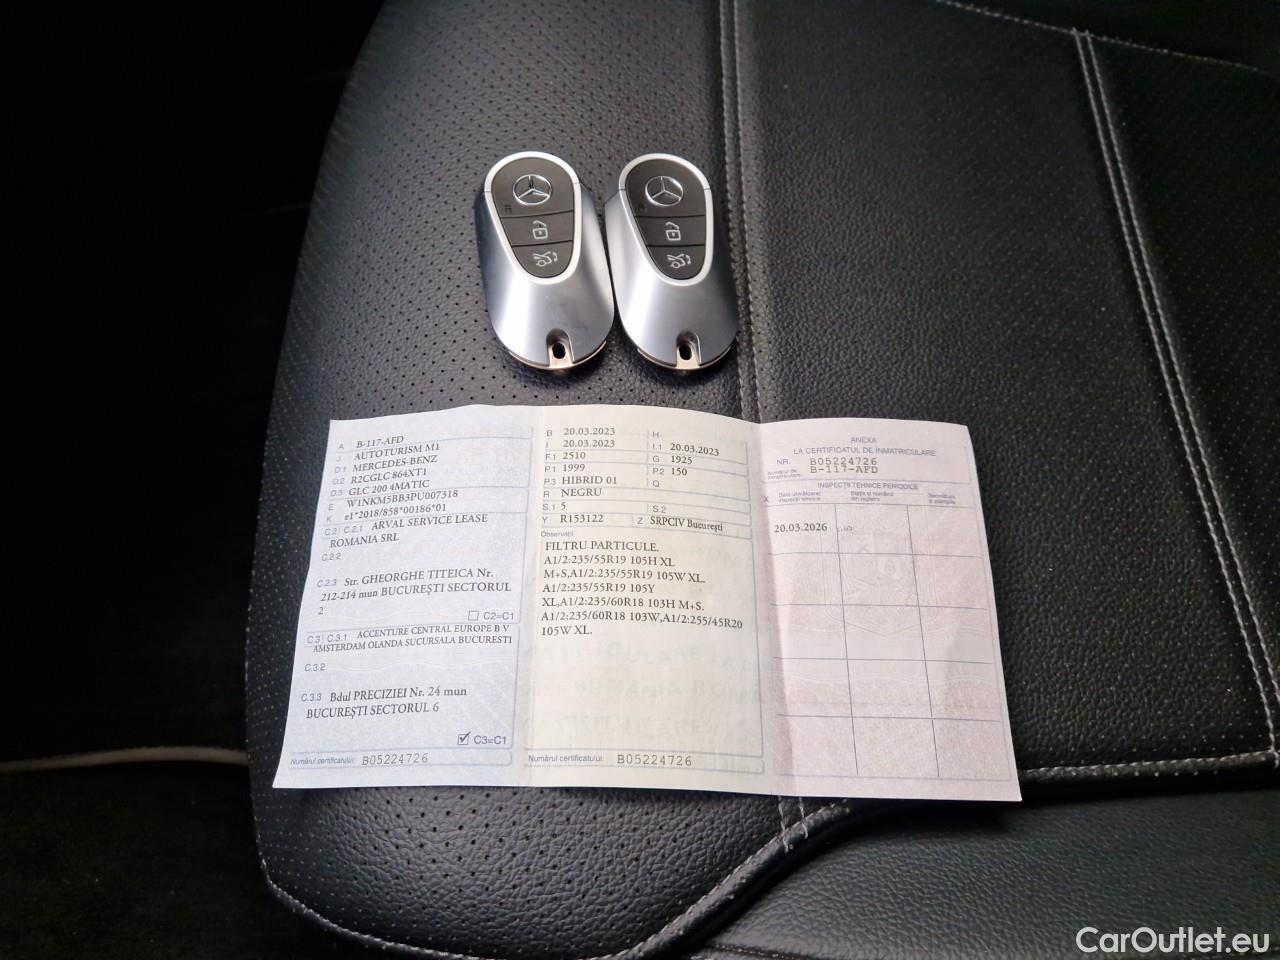 A B-117-AFD
J AUTOTURISM M1
D.1 MERCEDES-BENZ
D.2 R2CGLC 864XT1
D.3 GLC 200 4MATIC
E W1NKM5BB3PU007318
K e1*2018/858*00186*01
C.2 C.2.1 ARVAL SERVICE LEASE
ROMANIA SRL
C.2.2
C.2.3 Str. GHEORGHE TITEICA Nr.
212-214 mun BUCUREȘTI SECTORUL
2
C2=C1
C.3 C.3.1 ACCENTURE CENTRAL EUROPE B V
AMSTERDAM OLANDA SUCURSALA BUCURESTI
C.3.2
C.3.3 Bdul PRECIZIEI Nr. 24 mun
BUCUREȘTI SECTORUL 6
C3=C1
Numărul certificatului: B05224726
B 20.03.2023 H
I 20.03.2023 I.1 20.03.2023
F.1 2510 G 1925
P.1 1999 P.2 150
P.3 HIBRID 01 Q
R NEGRU
S.1 5 S.2
Y R153122 Z SRPCIV București
Observații
FILTRU PARTICULE.
A1/2:235/55R19 105H XL
M+S,A1/2:235/55R19 105W XL.
A1/2:235/55R19 105Y
XL,A1/2:235/60R18 103H M+S.
A1/2:235/60R18 103W,A1/2:255/45R20
105W XL.
Numărul certificatului: B05224726
ANEXA
LA CERTIFICATUL DE ÎNMATRICULARE
NR. B05224726
Numărul de înmatriculare: B-117-AFD
INSPECȚII TEHNICE PERIODICE
X Data următoarei inspecții tehnice
Stația și numărul din registru
Semnătura și ștampila
20.03.2026
CarOutlet.eu